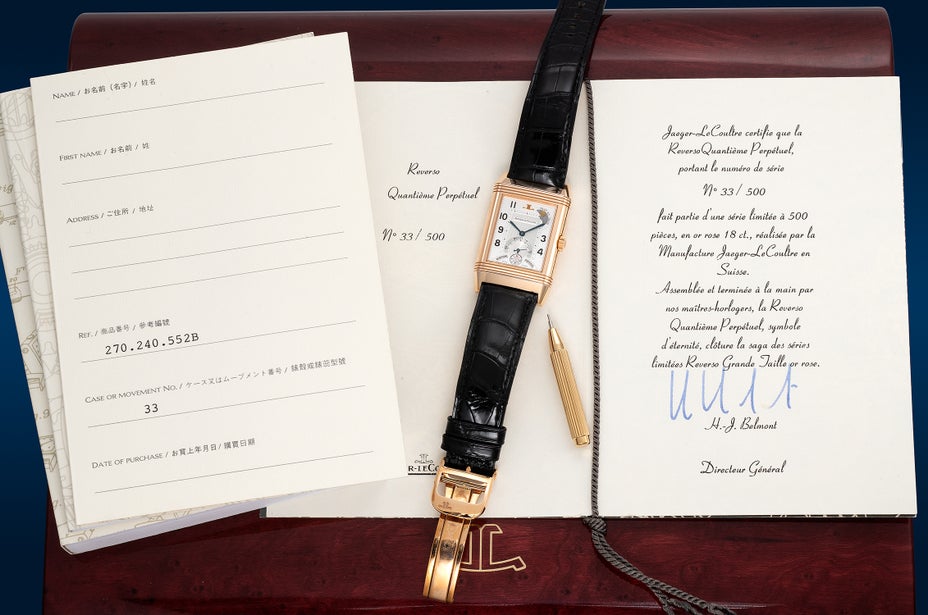 NAME / お名前 (名字) / 姓名
FIRST NAME / お名前 / 姓
ADDRESS / ご住所 / 地址
REF. / 商品番号 / 參考編號
270.240.552B
CASE OR MOVEMENT NO. / ケース又はムーブメント番号 / 錶殼或錶芯型號
33
DATE OF PURCHASE / お買上年月日 / 購買日期
Reverso
Quantième Perpétuel
N° 33 / 500
11
12
1
10
2
9
3
8
4
Jaeger-LeCoultre certifie que la
Reverso Quantième Perpétuel,
portant le numéro de série
N° 33 / 500
fait partie d'une série limitée à 500
pièces, en or rose 18 ct., réalisée par la
Manufacture Jaeger-LeCoultre en
Suisse.
Assemblée et terminée à la main par
nos maîtres-horlogers, la Reverso
Quantième Perpétuel, symbole
d'éternité, clôture la saga des séries
limitées Reverso Grande Taille or rose.
H.-J. Belmont
Directeur Général
JL